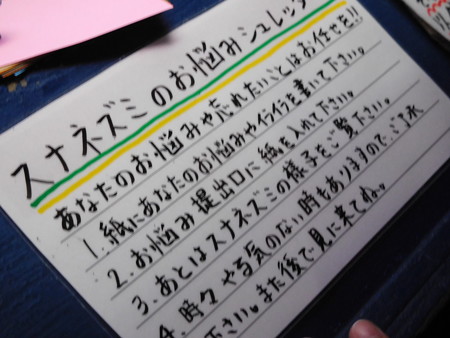 スナネズミのお悩みシュレッダ
あなたのお悩みや忘れたいことはお任せを!!
1. 紙にあなたのお悩みや行行を書いて下さい。
2. お悩み提出口に紙を入れて下さい。
3. あとはスナネズミの様子をご覧下さい。
4. 時々やる気のない時もありますので、ご了承
下さい。また後で見に来てね。